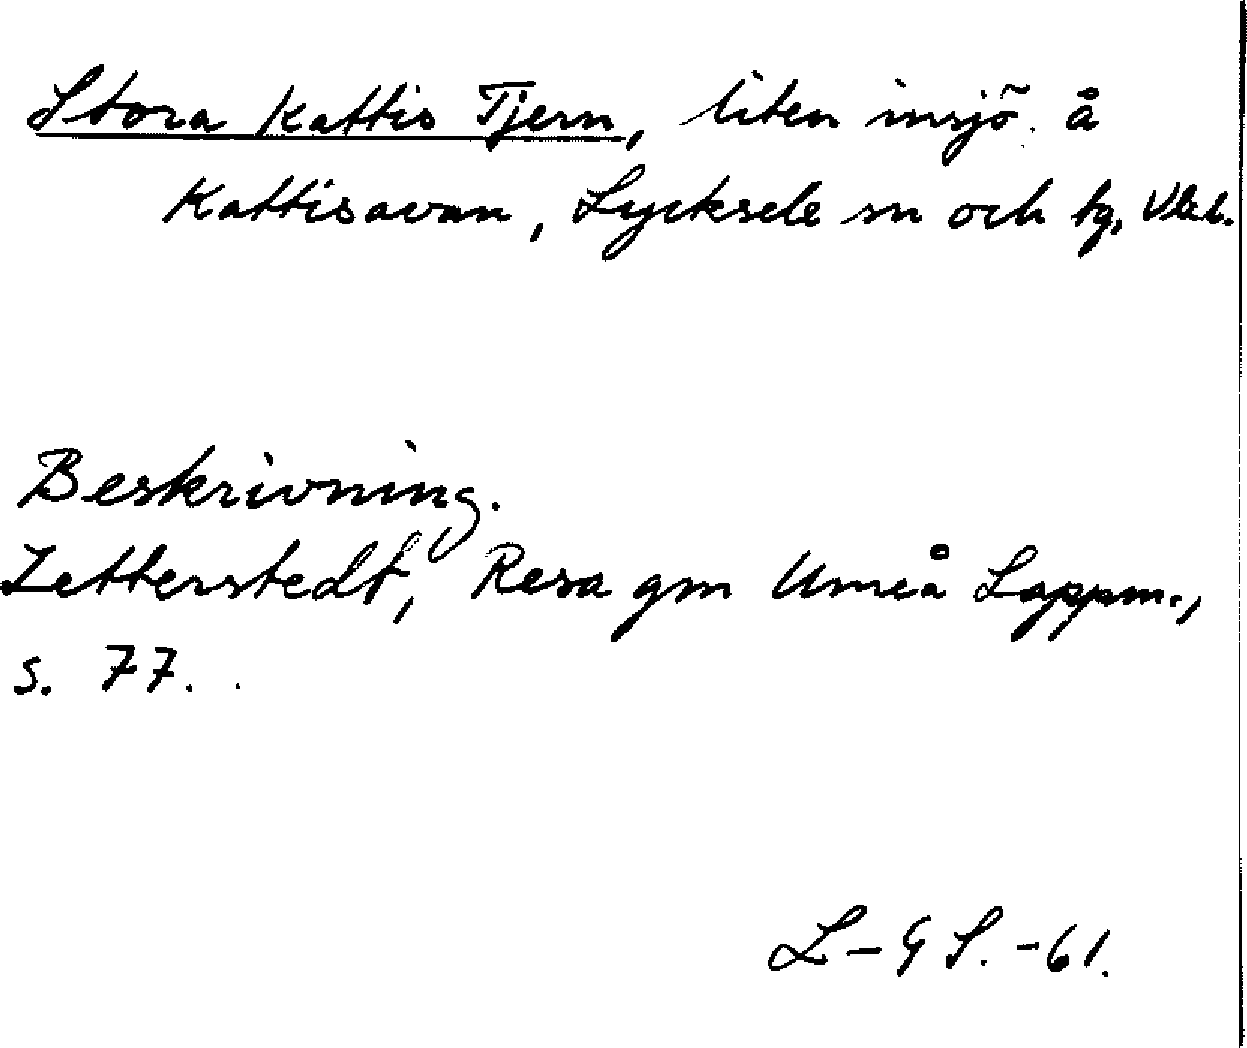 Stora Kattis Tjern, liten insjö å
Kattisavan, Lycksele sn och tg, Vlal.
Beskrivning.
Zetterstedt, Resa gm Umeå Lappm.,
s. 77.
L-G S. -61.